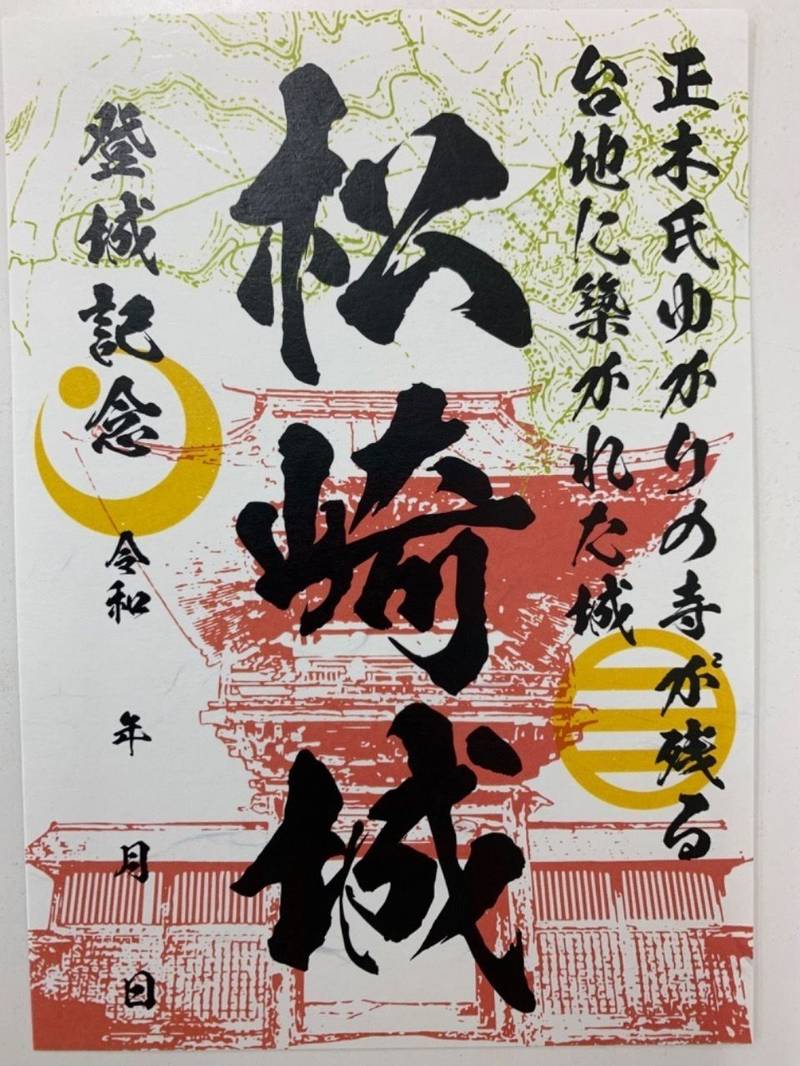 正木氏ゆかりの寺が残る
台地に築かれた城
松崎城
登城記念
令和 年 月 日